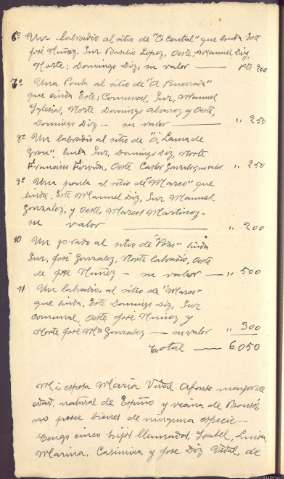 6º Un labradío al sitio de "O Cantal" que linda Este
José Núñez, Sur Basilio López, Oeste Manuel Díz,
Norte, Domingo Díz, su valor — 200
7º Una Poula al sitio de "
que linda Este, Comunal, Sur, Manuel
Iglesias, Norte Domingo Alvarez, y Oeste,
Domingo Díz — su valor — " 250
8º Un labradío al sitio de "
linda Sur, Domingo Díz, Norte
Francisco Oeste Castor su valor " 250
9º Una poula al sitio de "Marco" que
linda, Este Manuel Díz, Sur Manuel
Gonzalez, y Oeste, Marcos Martínez —
su valor — " 200
10 Un al sitio de linda
Sur, José Gonzalez, Norte labradío, Oeste
de José Núñez — su valor — " 500
11 Un labradío al sitio de "Marco"
que linda, Este Domingo Díz, Sur
comunal, Oeste José Núñez y
Norte José Mª Gonzalez — su valor " 300
Total — 6050
Mi esposa María Vidal Afonso mayor de
edad, natural de y vecina de
no posee bienes de ninguna especie —
Tengo cinco hijos llamados, Isabel, Luisa
Marina, Casimira y José Díz Vidal, de